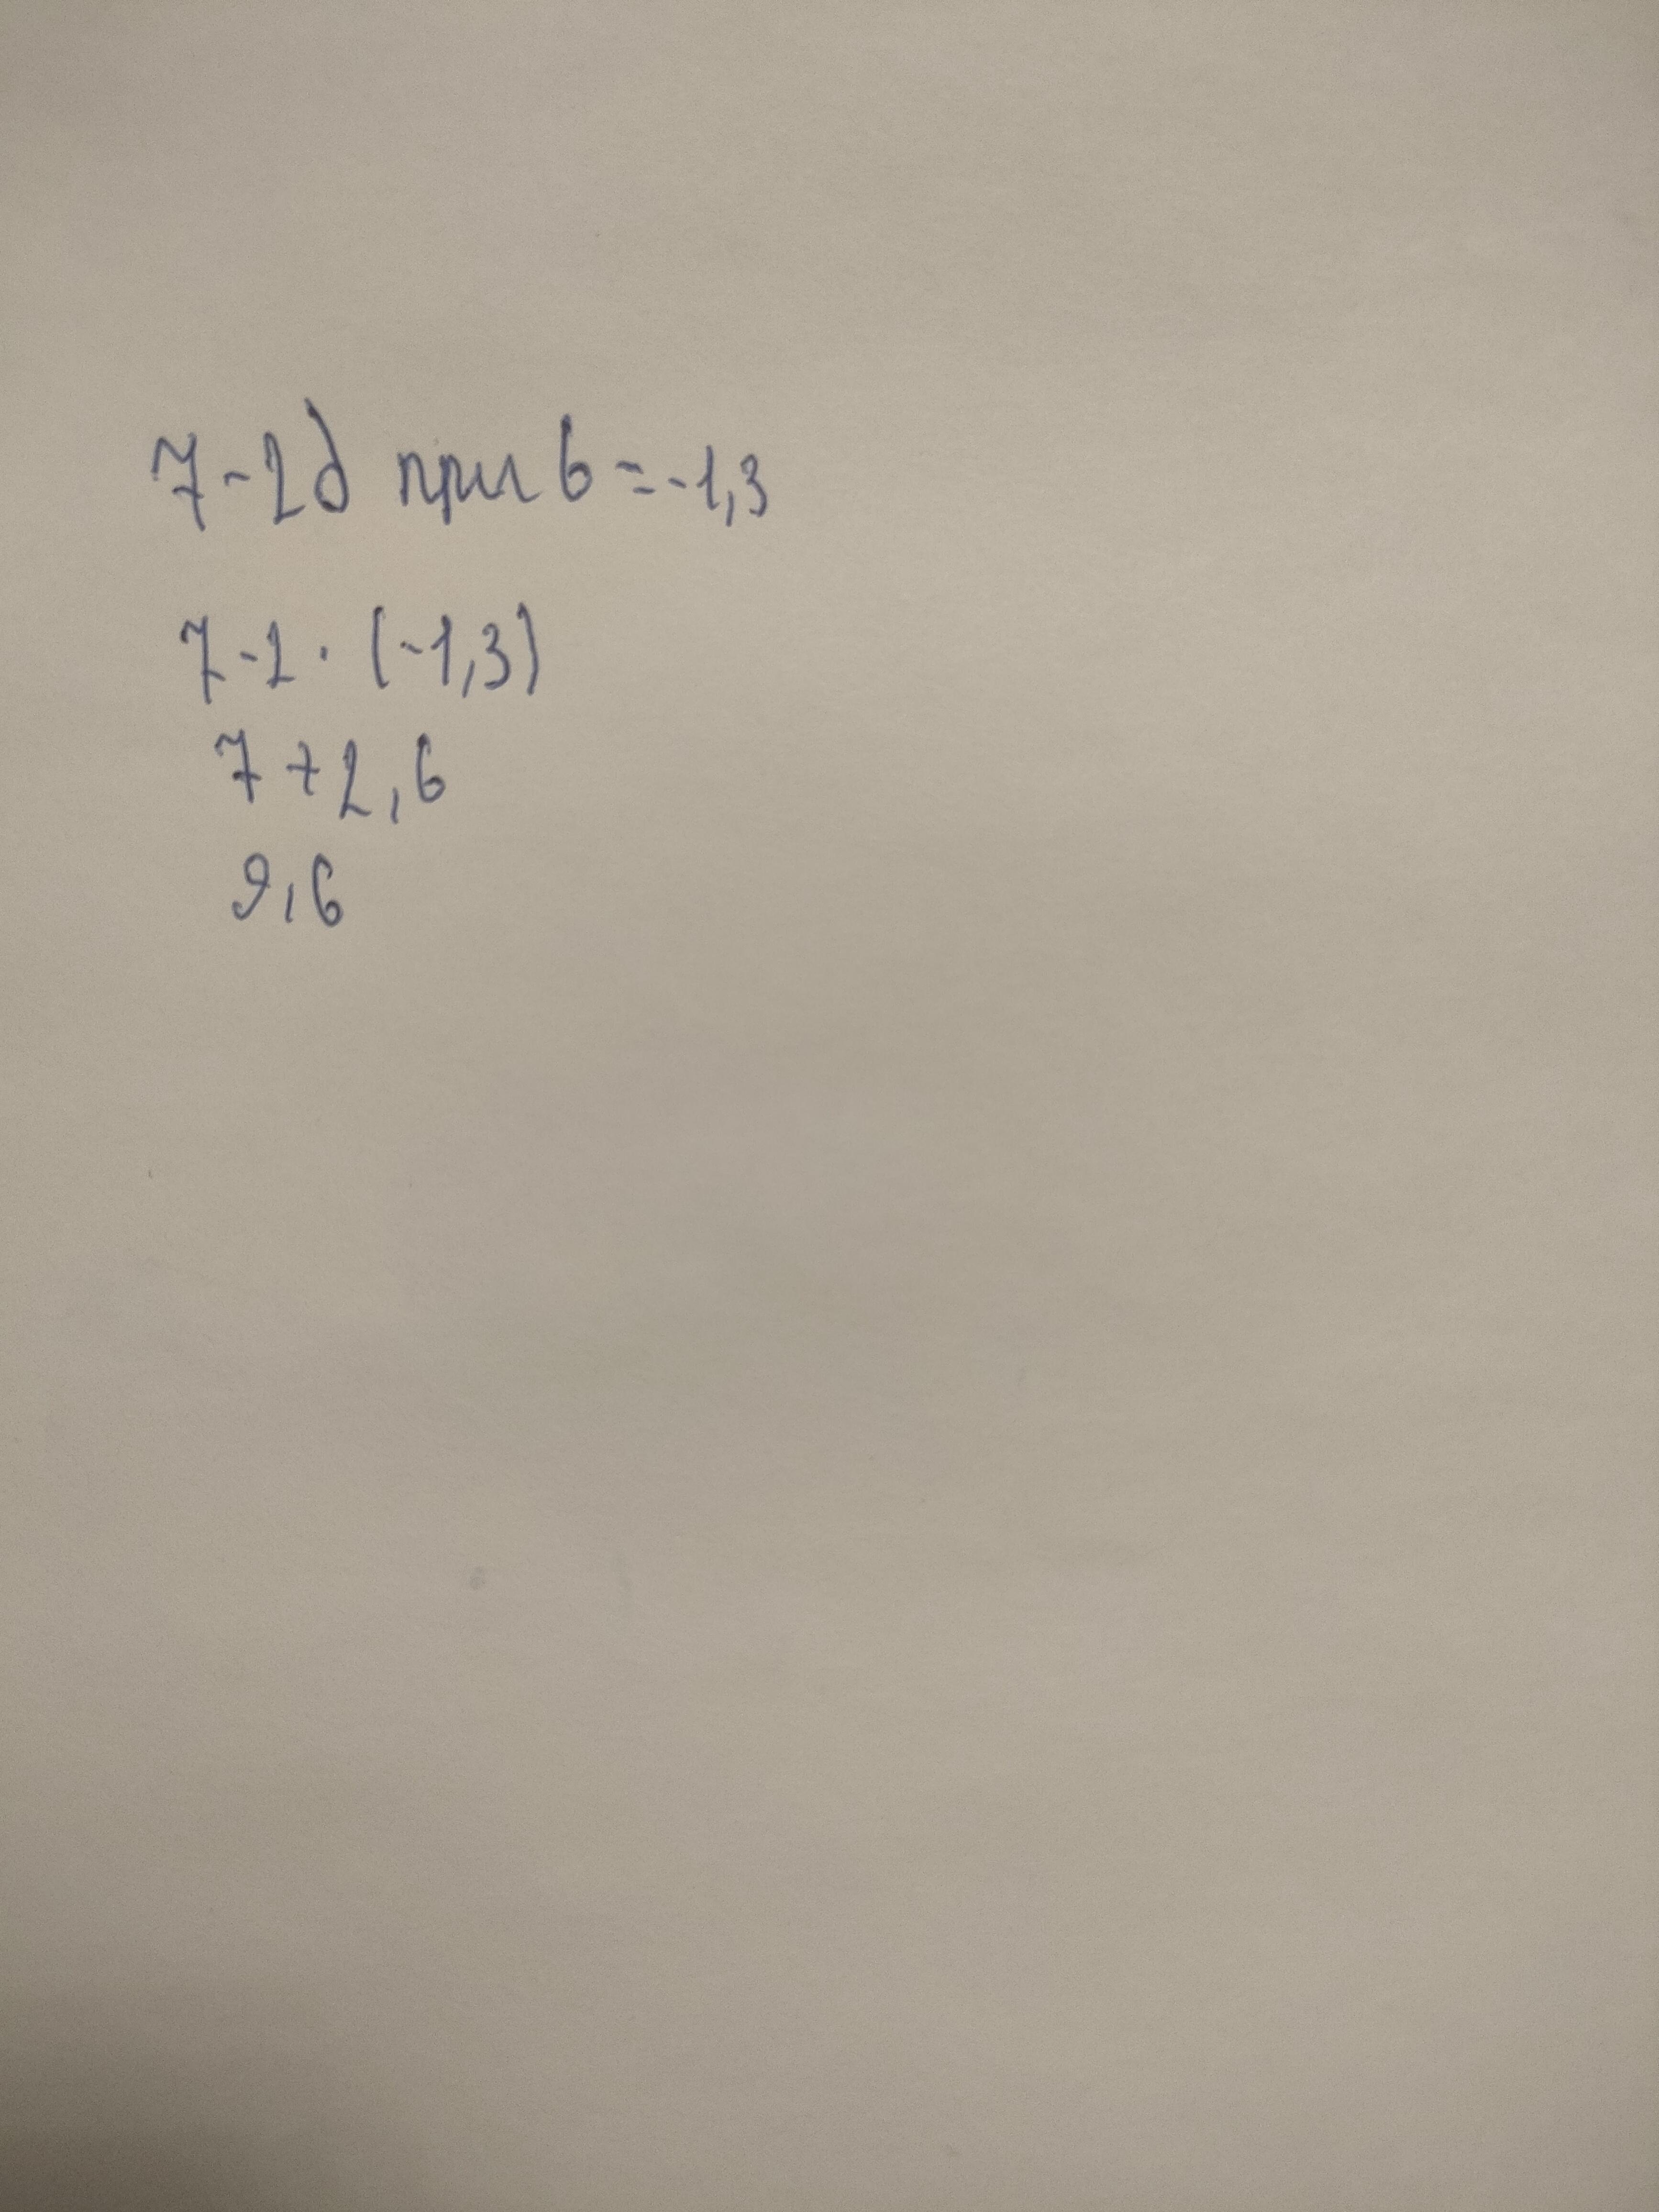 7-2д при b=-1,3
7-2·(-1,3)
7+2,6
9,6